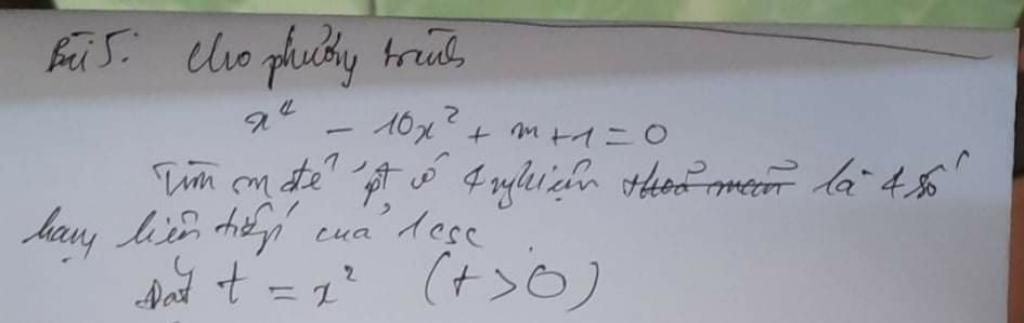 Bài 5: Cho phương trình
x⁴ - 10x² + m + 1 = 0
Tìm m để pt có 4 nghiệm thoả mãn là 4 số
hạng liên tiếp của 1 csc
Đặt t = x² (t > 0)